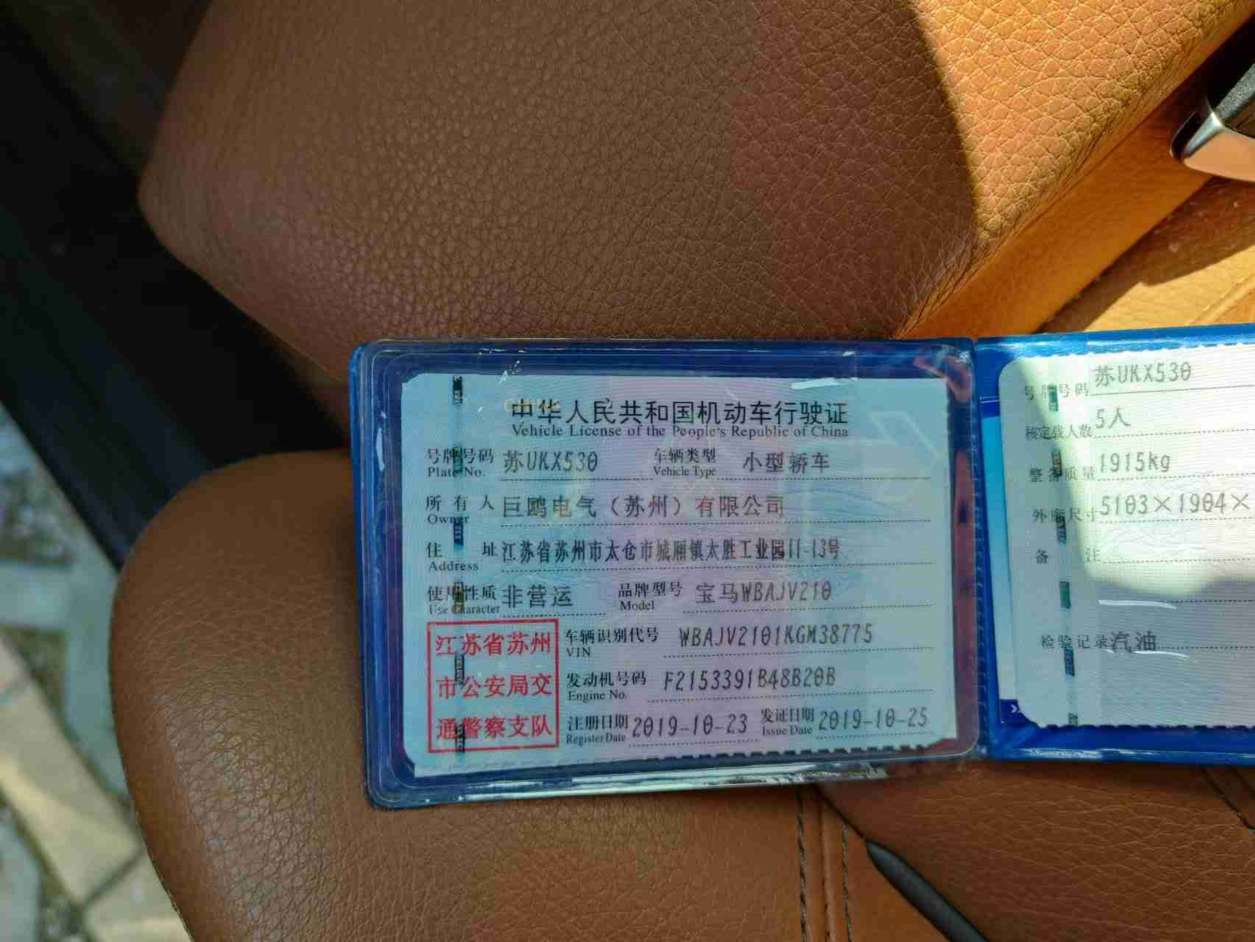 中华人民共和国机动车行驶证
Vehicle License of the People's Republic of China
号牌号码 苏UKX530 车辆类型 小型轿车
Plate No. Vehicle Type
所有人 巨鸥电气（苏州）有限公司
Owner
住址 江苏省苏州市太仓市城厢镇太胜工业园11-13号
Address
使用性质 非营运 品牌型号 宝马WBAJV210
Use Character Model
江苏省苏州
市公安局交
通警察支队
车辆识别代号 WBAJV2101KGM38775
VIN
发动机号码 F2153391B48B20B
Engine No.
注册日期 2019-10-23 发证日期 2019-10-25
Register Date Issue Date
号牌号码 苏UKX530
核定载人数 5人
整备质量 1915kg
外廓尺寸 5103×1904×
备注
检验记录 汽油